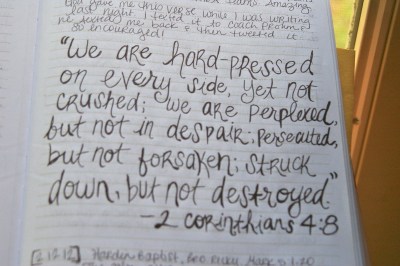 gave me this verse while I was writing
last night. I texted it to coach
he texted me back & then tweeted it
so encouraged!
"We are hard-pressed
on every side, yet not
crushed; we are perplexed,
but not in despair; persecuted,
but not forsaken; struck
down, but not destroyed."
-2 Corinthians 4:8
Hardin Baptist,